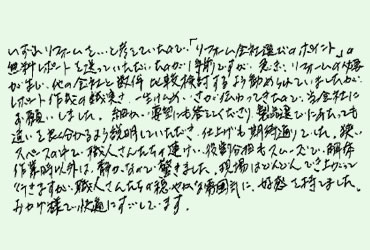 いずれリフォームを…と考えていたので、「リフォーム会社選びのポイント」の
無料レポートを送っていただいたのが1年前ですが、急きょリフォームの必要
が生じ、他の会社と数件比較検討するよう勧められていましたが、
レポート作成の誠実さ、一生けんめいさが伝わってきたので、当会社に
お願いしました。細かい要望にも答えてくださり、製品選びにあたっても
違いをよく分かるよう説明していただき、仕上がりも期待通りでした。狭い
スペースの中で職人さんたちの連けい、役割分担もスムーズで、解体
作業時以外は、静かなので驚きました。現場はどんどんでき上がって
行きますが、職人さんたちの穏やかな雰囲気に、好感を持てました。
おかげ様で快適にすごしています。